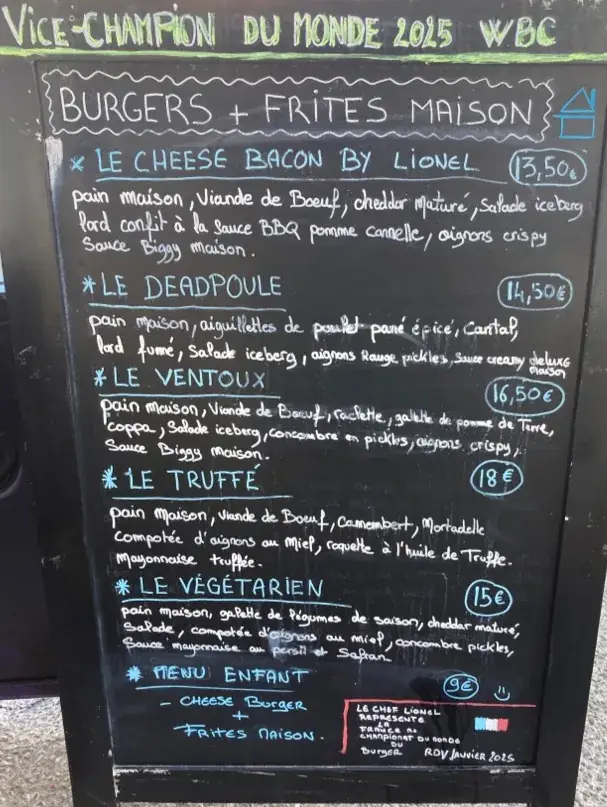 VICE-CHAMPION DU MONDE 2025 WBC
BURGERS + FRITES MAISON
* LE CHEESE BACON BY LIONEL 13,50€
pain maison, Viande de Boeuf, cheddar maturé, Salade iceberg
lard confit à la sauce BBQ pomme cannelle, oignons crispy
Sauce Biggy maison.
* LE DEADPOULE 14,50€
pain maison, aiguillettes de poulet pané épicé, Cantal,
lard fumé, Salade iceberg, oignons Rouge pickles, sauce creamy deluxe
maison
* LE VENTOUX 16,50€
pain maison, Viande de Boeuf, raclette, galette de pomme de Terre,
coppa, Salade iceberg, concombre en pickles, oignons crispy,
Sauce Biggy maison.
* LE TRUFFÉ 18€
pain maison, viande de Boeuf, Camembert, Mortadelle
Compotée d'oignons au Miel, roquette à l'huile de Truffe.
Mayonnaise truffée.
* LE VÉGÉTARIEN 15€
pain maison, galette de légumes de saison, cheddar maturé,
Salade, compotée d'oignons au miel, concombre pickles,
Sauce mayonnaise au persil et Safran
* MENU ENFANT 9€
- CHEESE BURGER
+
FRITES MAISON.
LE CHEF LIONEL
REPRESENTE
LA
FRANCE AU
CHAMPIONAT DU MONDE
DU
BURGER RDV JANVIER 2025